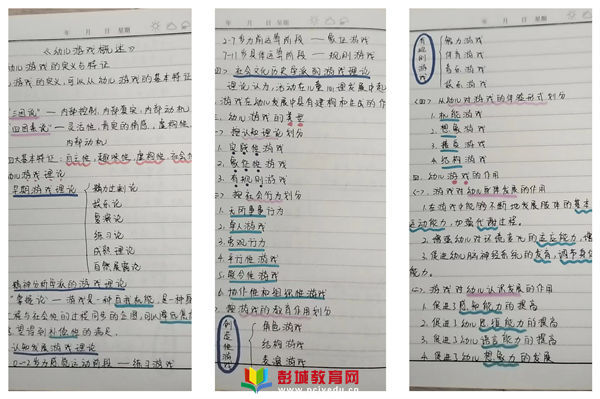 年 月 日 星期
《幼儿游戏概述》
幼儿游戏的定义与特征
游戏的定义,可以从幼儿游戏的基本特征
"三因说"——内部控制,内部真实,内部动机
"四因素论"——灵活性,肯定的情感,虚构性,
内部动机
四大基本特征:自主性,趣味性,虚构性,社会性
幼儿游戏理论
早期游戏理论
精力过剩论
娱乐论
复演论
练习论
成熟理论
自然展露论
精神分析学派的游戏理论
"掌握论"——游戏是一种自我机能,是一种
望得到补偿性的满足
认知发展游戏理论
0-2岁为感知运动阶段——练习游戏
年 月 日 星期
2-7岁为前运算阶段——象征游戏
7-11岁具体运算阶段——规则游戏
(四)社会文化历史学派的游戏理论
理论认为,活动在儿童心理发展中起
游戏在幼儿发展中具有建构和生成的作
三.幼儿游戏的类型
(一)按认知理论划分
1.实践性游戏
2.象征性游戏
3.有规则游戏
(二)按社会行为划分
1.无所事事行为
2.单人游戏
3.旁观行为
4.平行性游戏
5.联合性游戏
6.协作性和组织性游戏
(三)按游戏的教育作用划分
创造性游戏
角色游戏
结构游戏
表演游戏
年 月 日 星期
有规则游戏
智力游戏
体育游戏
音乐游戏
娱乐游戏
(四)从幼儿对游戏的体验形式划分
1.机能游戏
2.想象游戏
3.接受游戏
4.结构游戏
四.幼儿游戏的作用
(一).游戏对幼儿身体发展的作用
1.在游戏中能够不断地发展肢体的基本
运动能力,加强代谢过程。
2.增强幼儿对环境变化的适应能力,
3.促进幼儿脑神经系统的发育,调节身体
能力。
(二).游戏对幼儿认识发展的作用
1.促进了感知能力的提高
2.促进了幼儿思维能力的提高
3.促进了幼儿语言能力的提高
4.促进了幼儿想象力的发展
彭城教育网
www.pcjyedu.cn